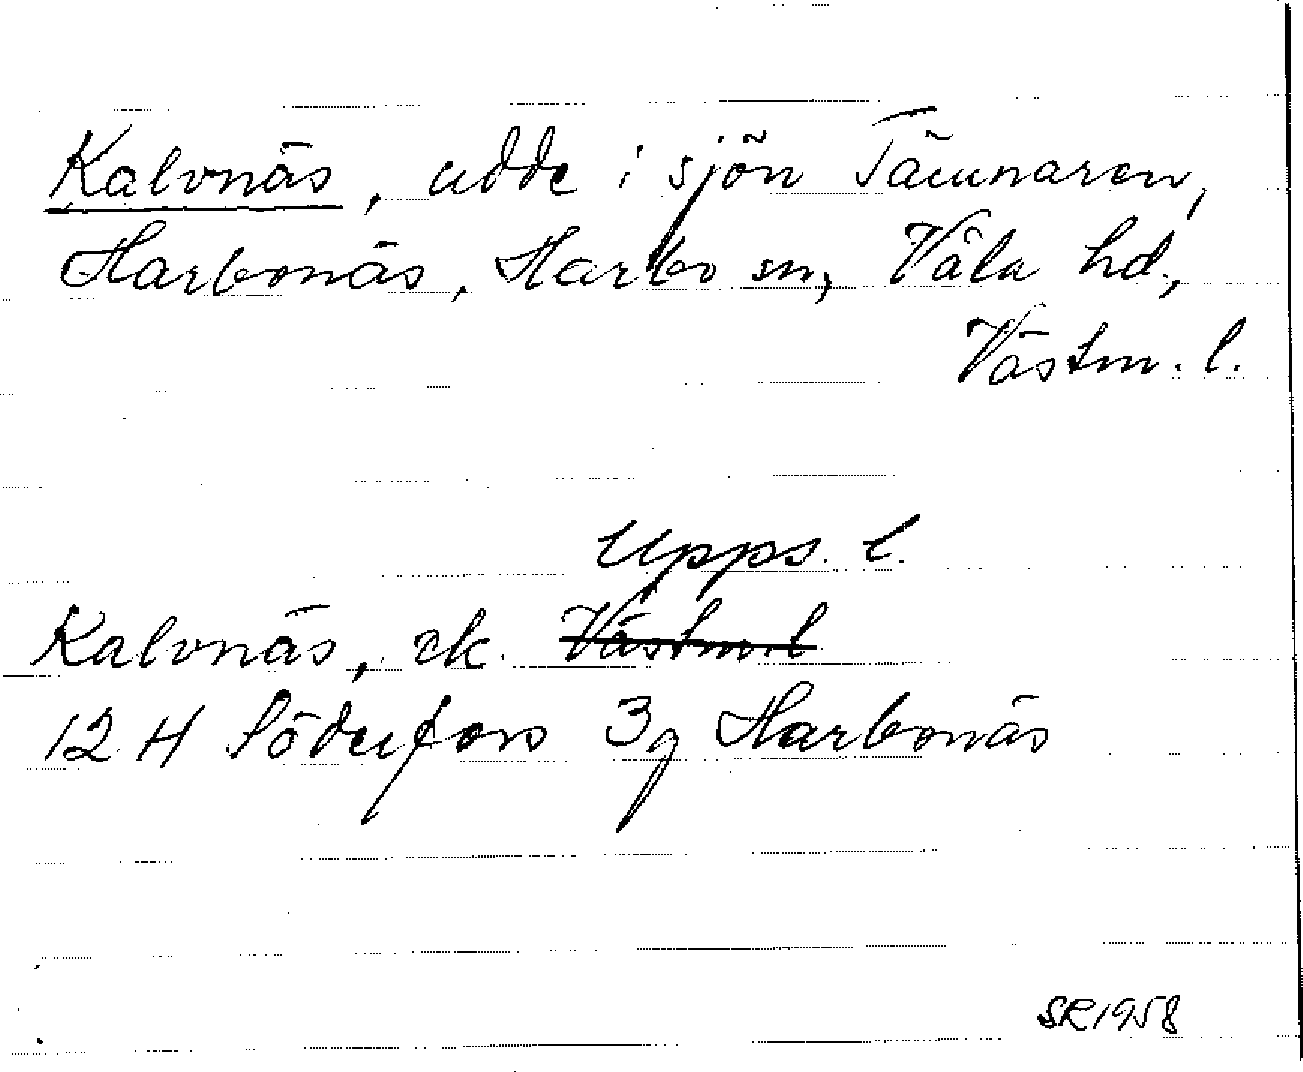 Kalvnäs, udde i sjön Tämnaren,
Harbonäs, Harbo sn, Våla hd,
Västm. l.
Upps. l.
Kalvnäs, ek. Västm. l
12 H Söderfors 3g Harbonäs
SR 1958